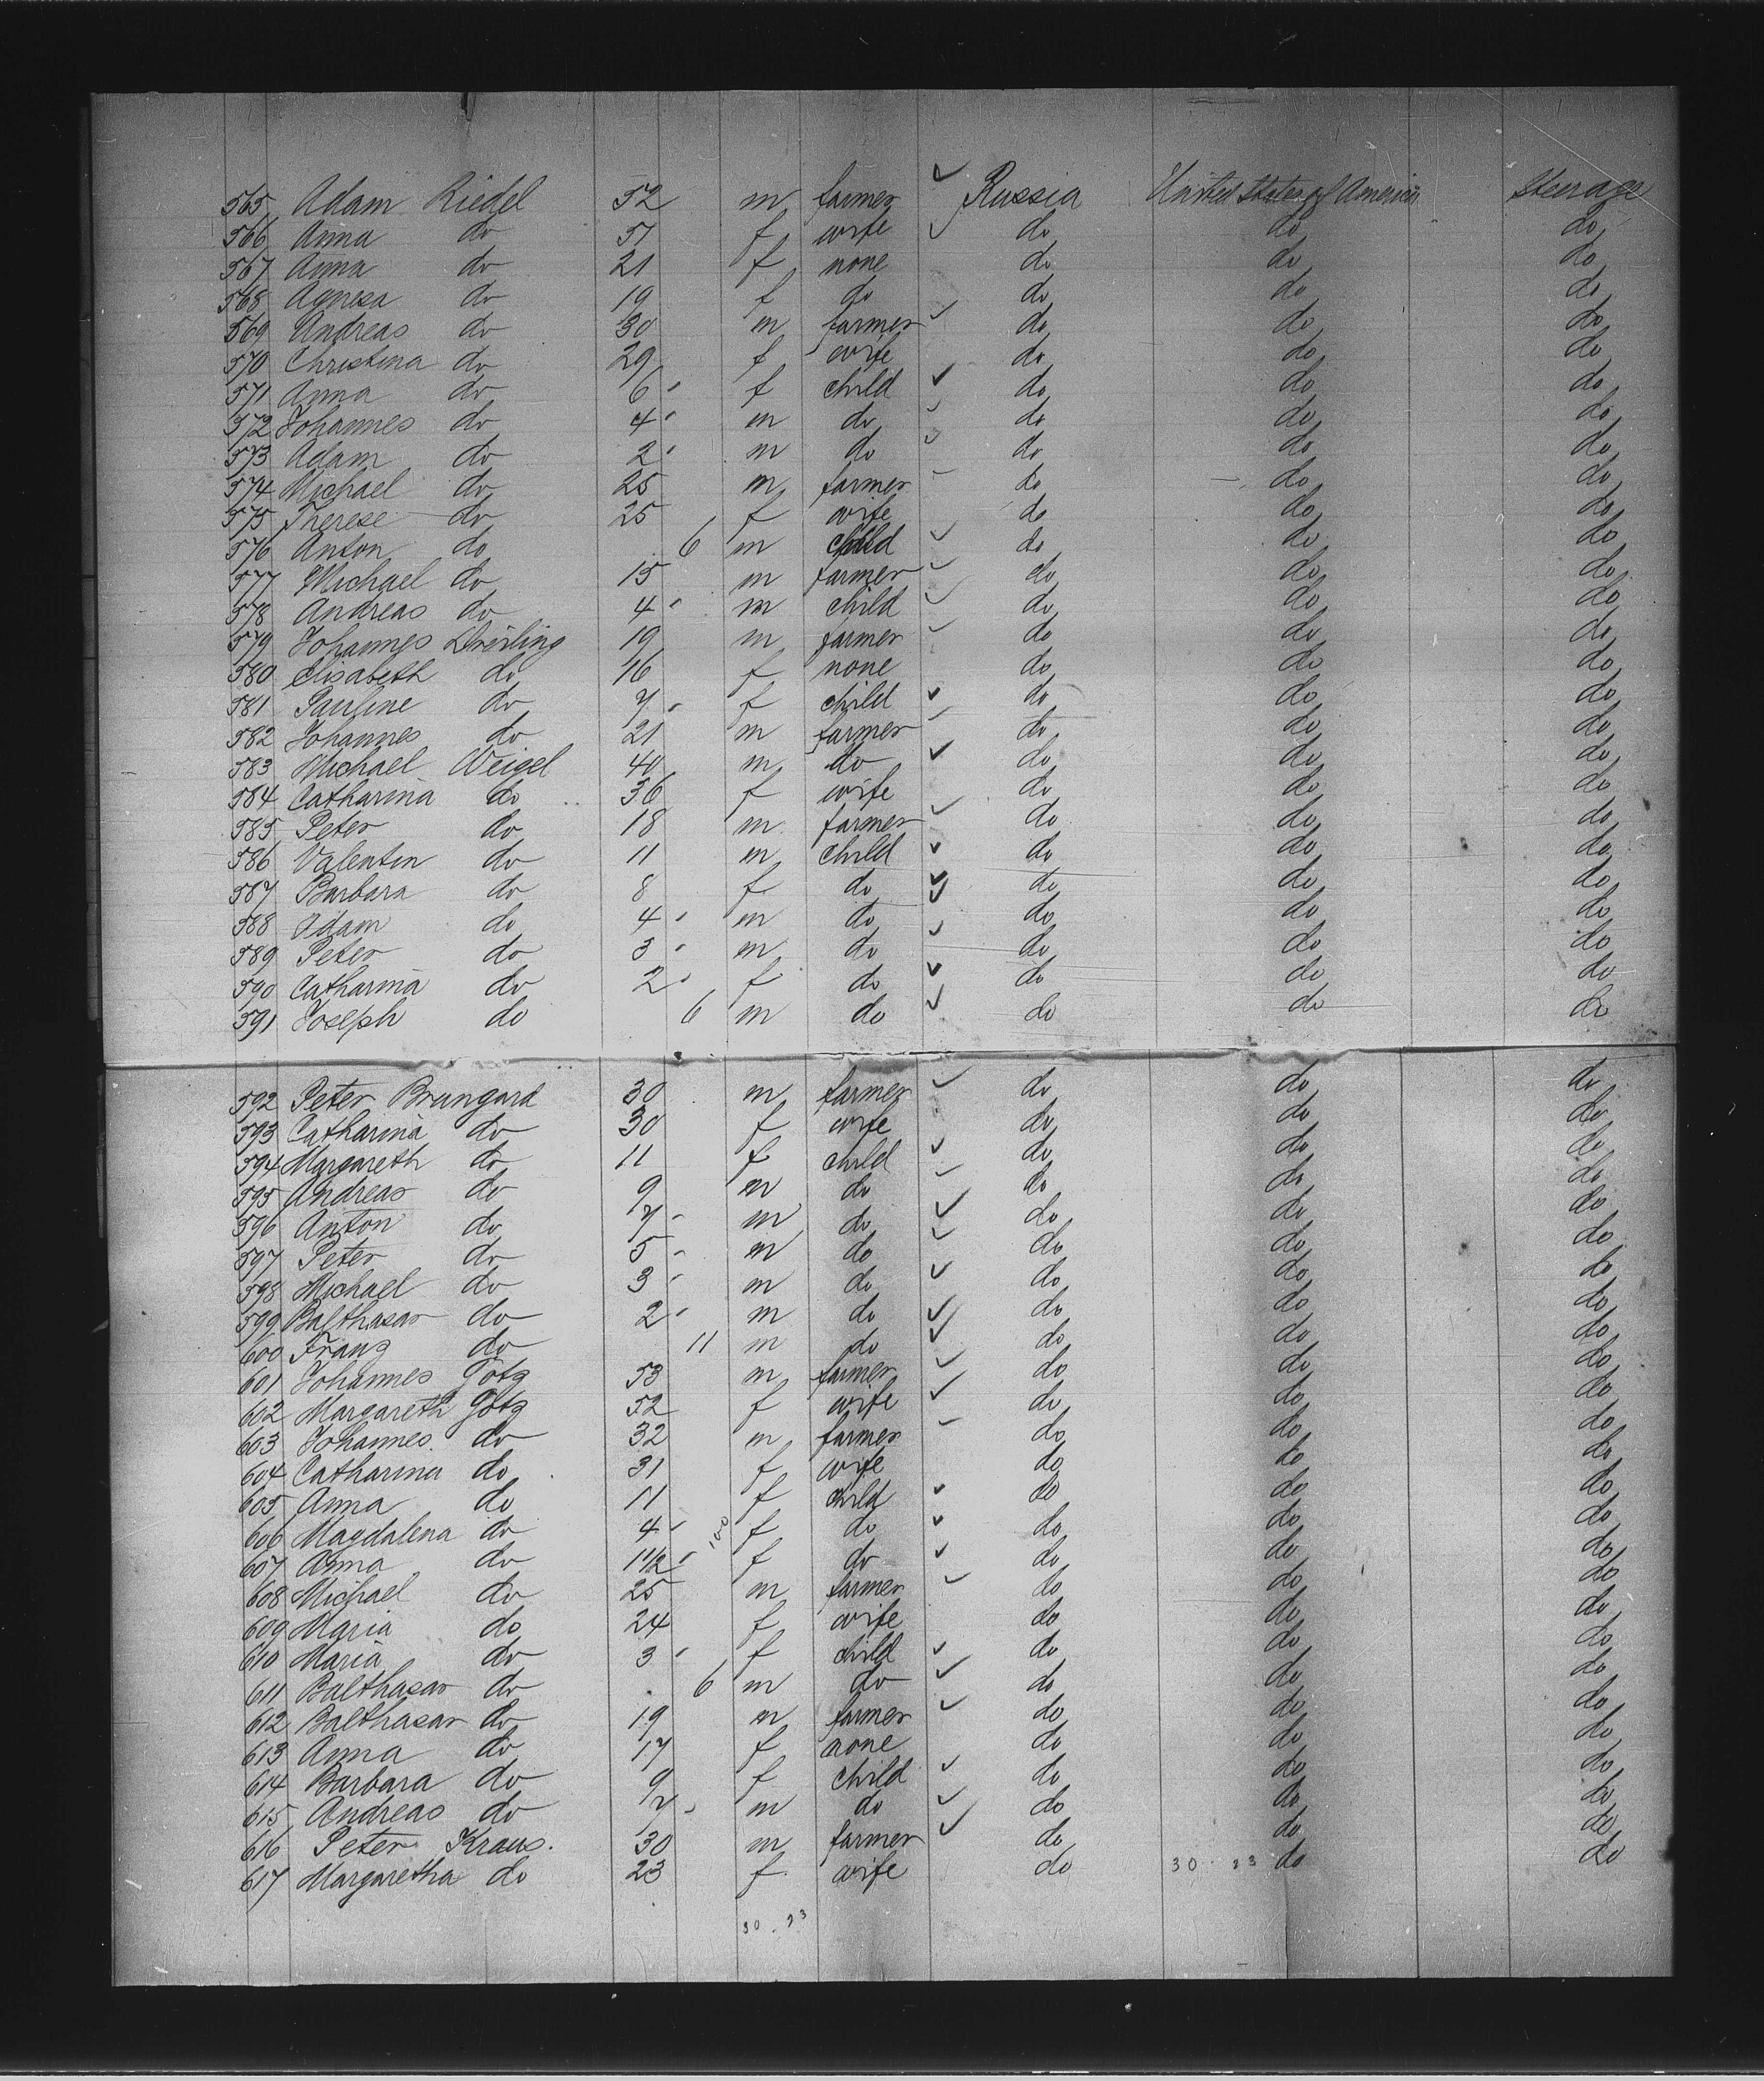 565 Adam Riedel 52 m farmer ✓ Russia United States of America Steerage
566 Anna do 51 f wife ✓ do do do
567 Anna do 21 f none do do do
568 Agnesa do 19 f do do do do
569 Andreas do 30 m farmer ✓ do do do
570 Christina do 29 f wife do do do
571 Anna do 6 f child ✓ do do do
572 Johannes do 4 m do ✓ do do do
573 Adam do 2 m do ✓ do do do
574 Michael do 25 m farmer do do do
575 Therese do 25 f wife do do do
576 Anton do 6 m child ✓ do do do
577 Michael do 15 m farmer ✓ do do do
578 Andreas do 4 m child ✓ do do do
579 Johannes Dreiling 19 m farmer ✓ do do do
580 Elisabeth do 16 f none do do do
581 Pauline do 7 f child ✓ do do do
582 Johannes do 21 m farmer ✓ do do do
583 Michael Weigel 40 m do ✓ do do do
584 Catharina do 36 f wife do do do
585 Peter do 18 m farmer ✓ do do do
586 Valentin do 11 m child ✓ do do do
587 Barbara do 8 f do ✓ do do do
588 Adam do 4 m do ✓ do do do
589 Peter do 3 m do ✓ do do do
590 Catharina do 2 f do ✓ do do do
591 Joseph do 6 m do ✓ do do do
592 Peter Brungard 30 m farmer ✓ do do do
593 Catharina do 30 f wife do do do
594 Margareth do 11 f child ✓ do do do
595 Andreas do 9 m do ✓ do do do
596 Anton do 7 m do ✓ do do do
597 Peter do 5 m do ✓ do do do
598 Michael do 3 m do ✓ do do do
599 Balthasar do 2 m do ✓ do do do
600 Franz do 11 m do ✓ do do do
601 Johannes Götz 53 m farmer ✓ do do do
602 Margareth Götz 52 f wife ✓ do do do
603 Johannes do 32 m farmer ✓ do do do
604 Catharina do 31 f wife do do do
605 Anna do 11 f child ✓ do do do
606 Magdalena do 4 f do ✓ do do do
607 Anna do 1 1/2 f do ✓ do do do
608 Michael do 25 m farmer ✓ do do do
609 Maria do 24 f wife do do do
610 Maria do 3 f child ✓ do do do
611 Balthasar do 6 m do ✓ do do do
612 Balthasar do 19 m farmer ✓ do do do
613 Anna do 17 f none do do do
614 Barbara do 9 f child ✓ do do do
615 Andreas do 7 m do ✓ do do do
616 Peter Kraus. 30 m farmer ✓ do do do
617 Margaretha do 23 f wife do do do